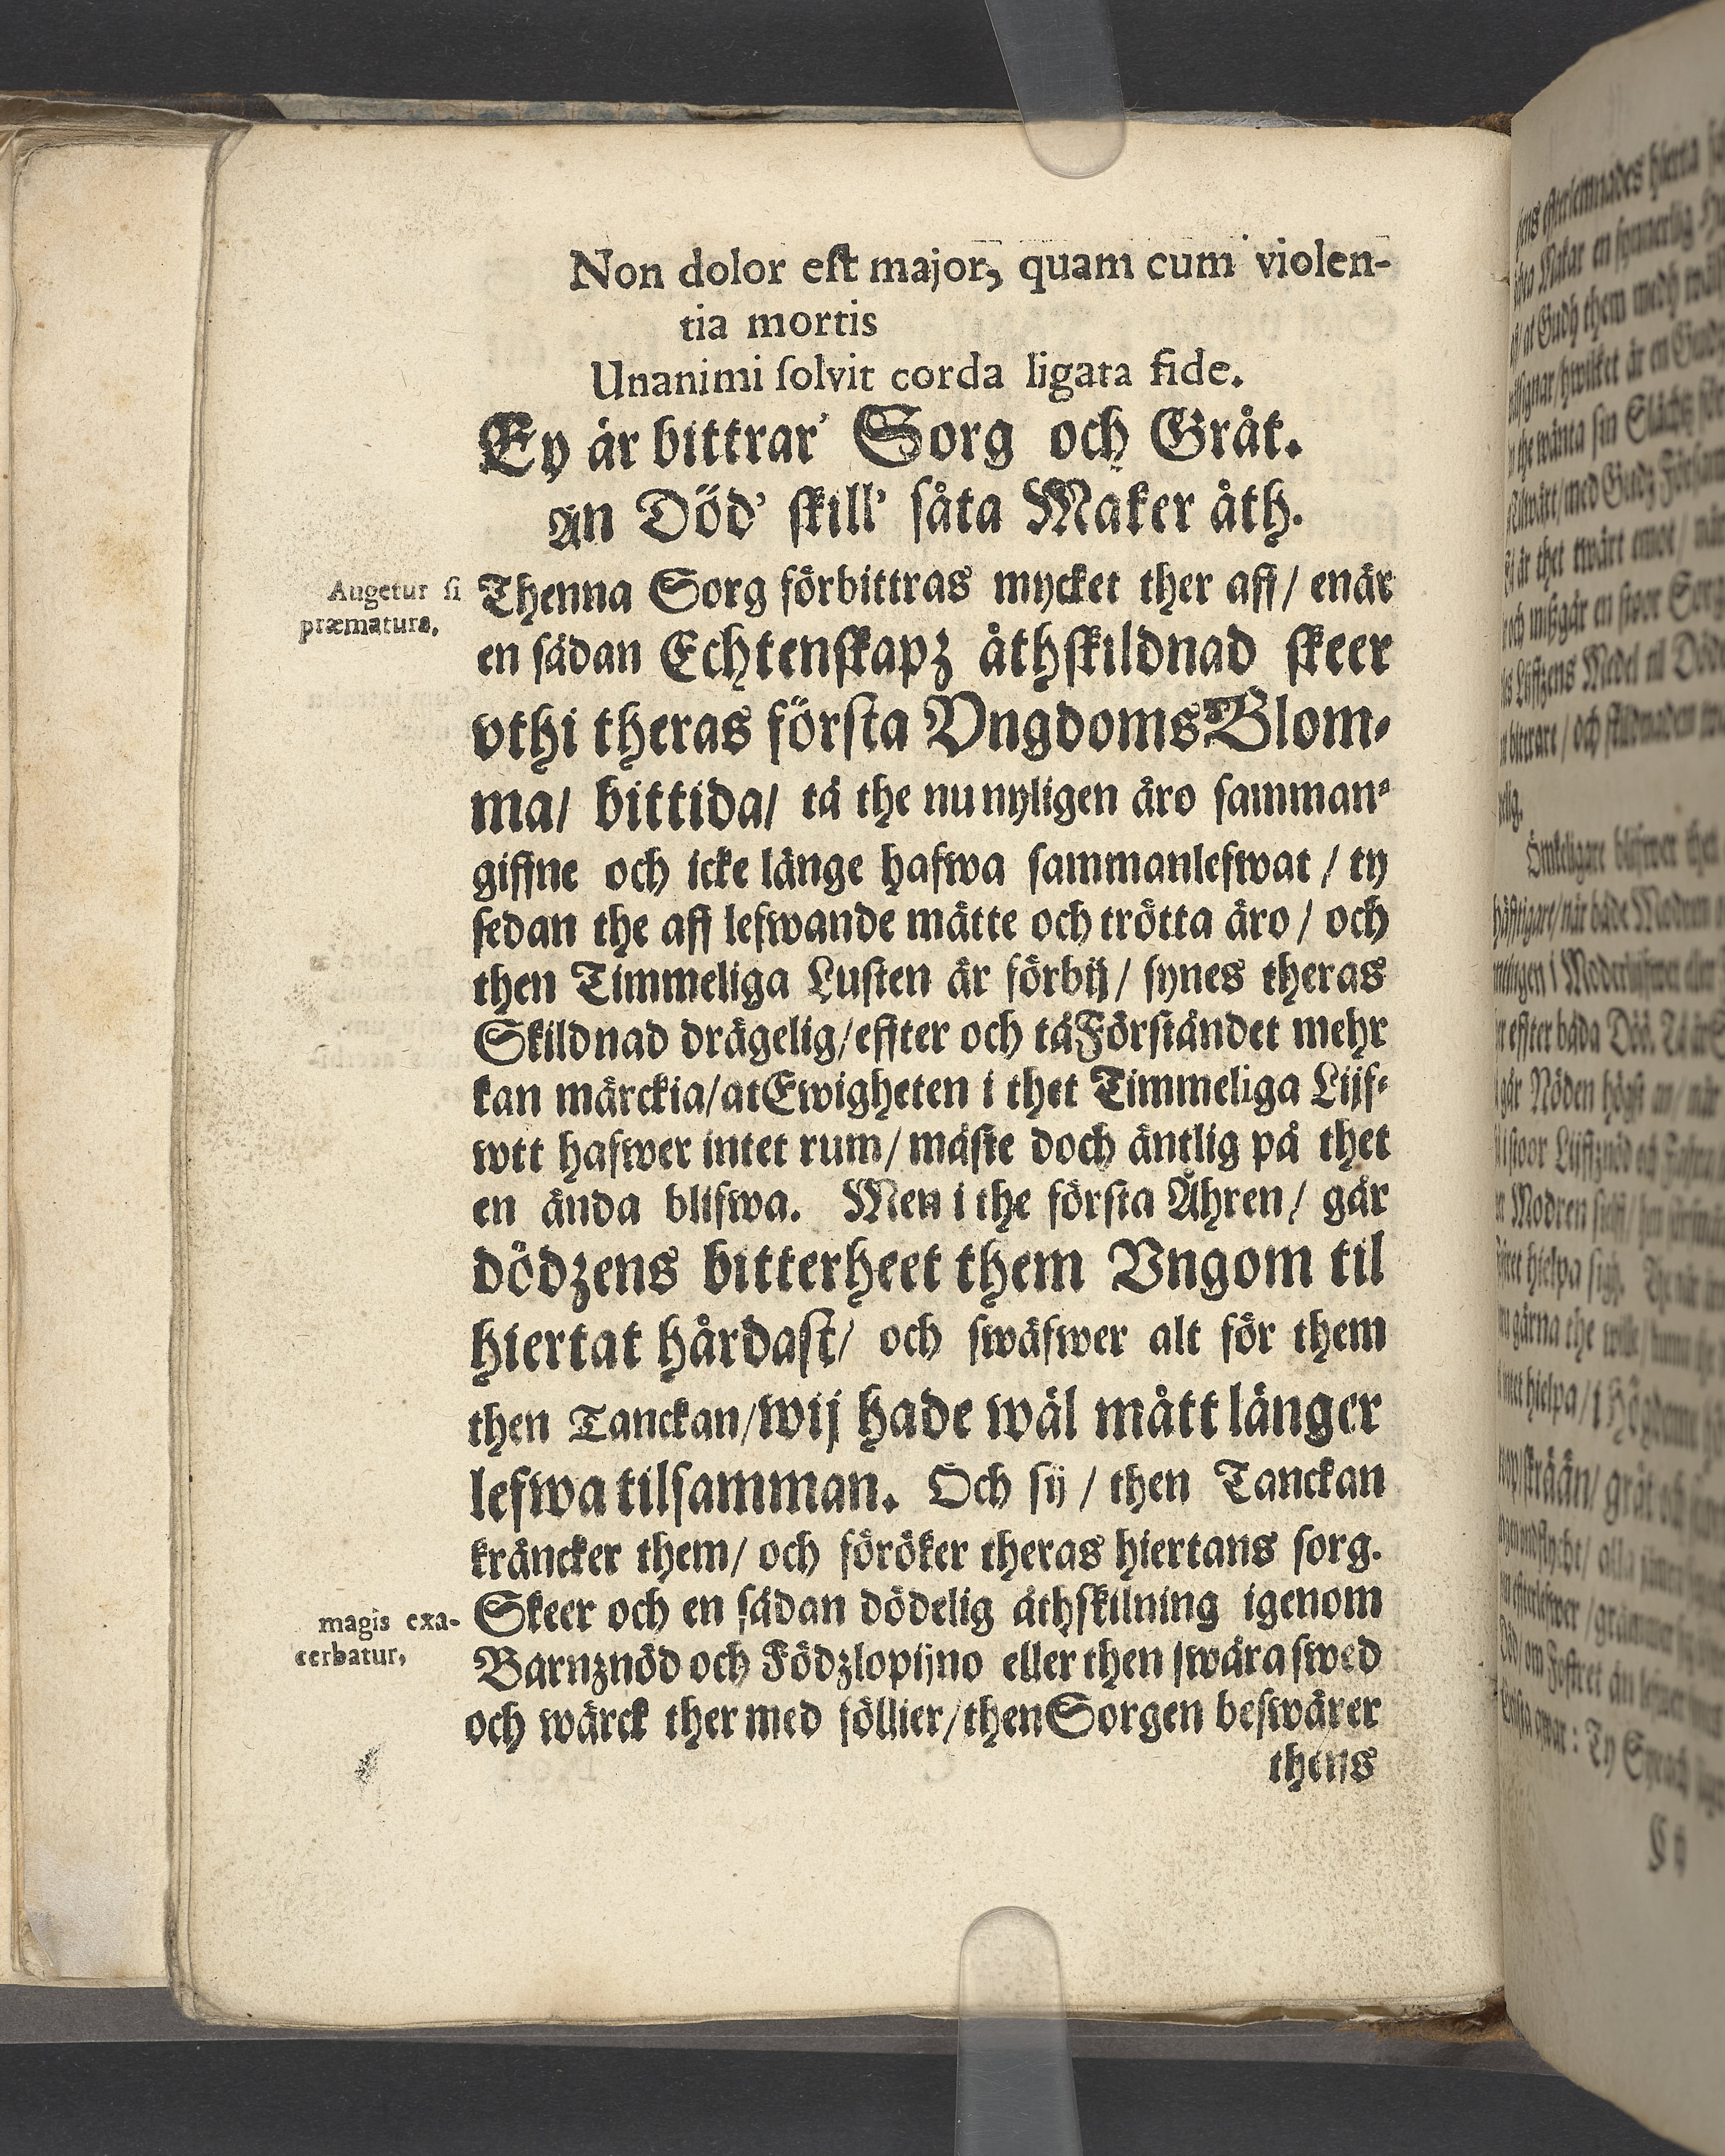 Non dolor eſt major, quam cum violen-
tia mortis
Unanimi ſolvit corda ligata fide.
Ey är bittrar' Sorg och Gråt.
Än Död' ſkill' ſåta Maker åth.
Augetur ſi
præmatura,
Thenna Sorg förbittras mycket ther aff/ enär
en ſådan Echtenſkapz åthſkildnad ſkeer
vthi theras förſta Vngdoms Blom-
ma/ bittida/ tå the nu nyligen äro ſamman-
giffne och icke länge hafwa ſammanlefwat / ty
ſedan the aff lefwande mätte och trötta äro / och
then Timmeliga Luſten är förbij/ ſynes theras
Skildnad drägelig/ effter och tå Förſtåndet mehr
kan märckia/ at Ewigheten i thet Timmeliga Lijf-
wtt hafwer intet rum/ måſte doch äntlig på thet
en ända blifwa. Men i the förſta Åhren/ går
dödzens bitterheet them Vngom til
hiertat hårdaſt/ och ſwäfwer alt för them
then Tanckan/ wij hade wäl mått länger
lefwa tilſamman. Och ſij / then Tanckan
kräncker them/ och föröker theras hiertans ſorg.
magis exa-
cerbatur,
Skeer och en ſådan dödelig åthſkilning igenom
Barnznöd och Födzlopijno eller then ſwåra ſwed
och wärck ther med föllier/ then Sorgen beſwärer
thens